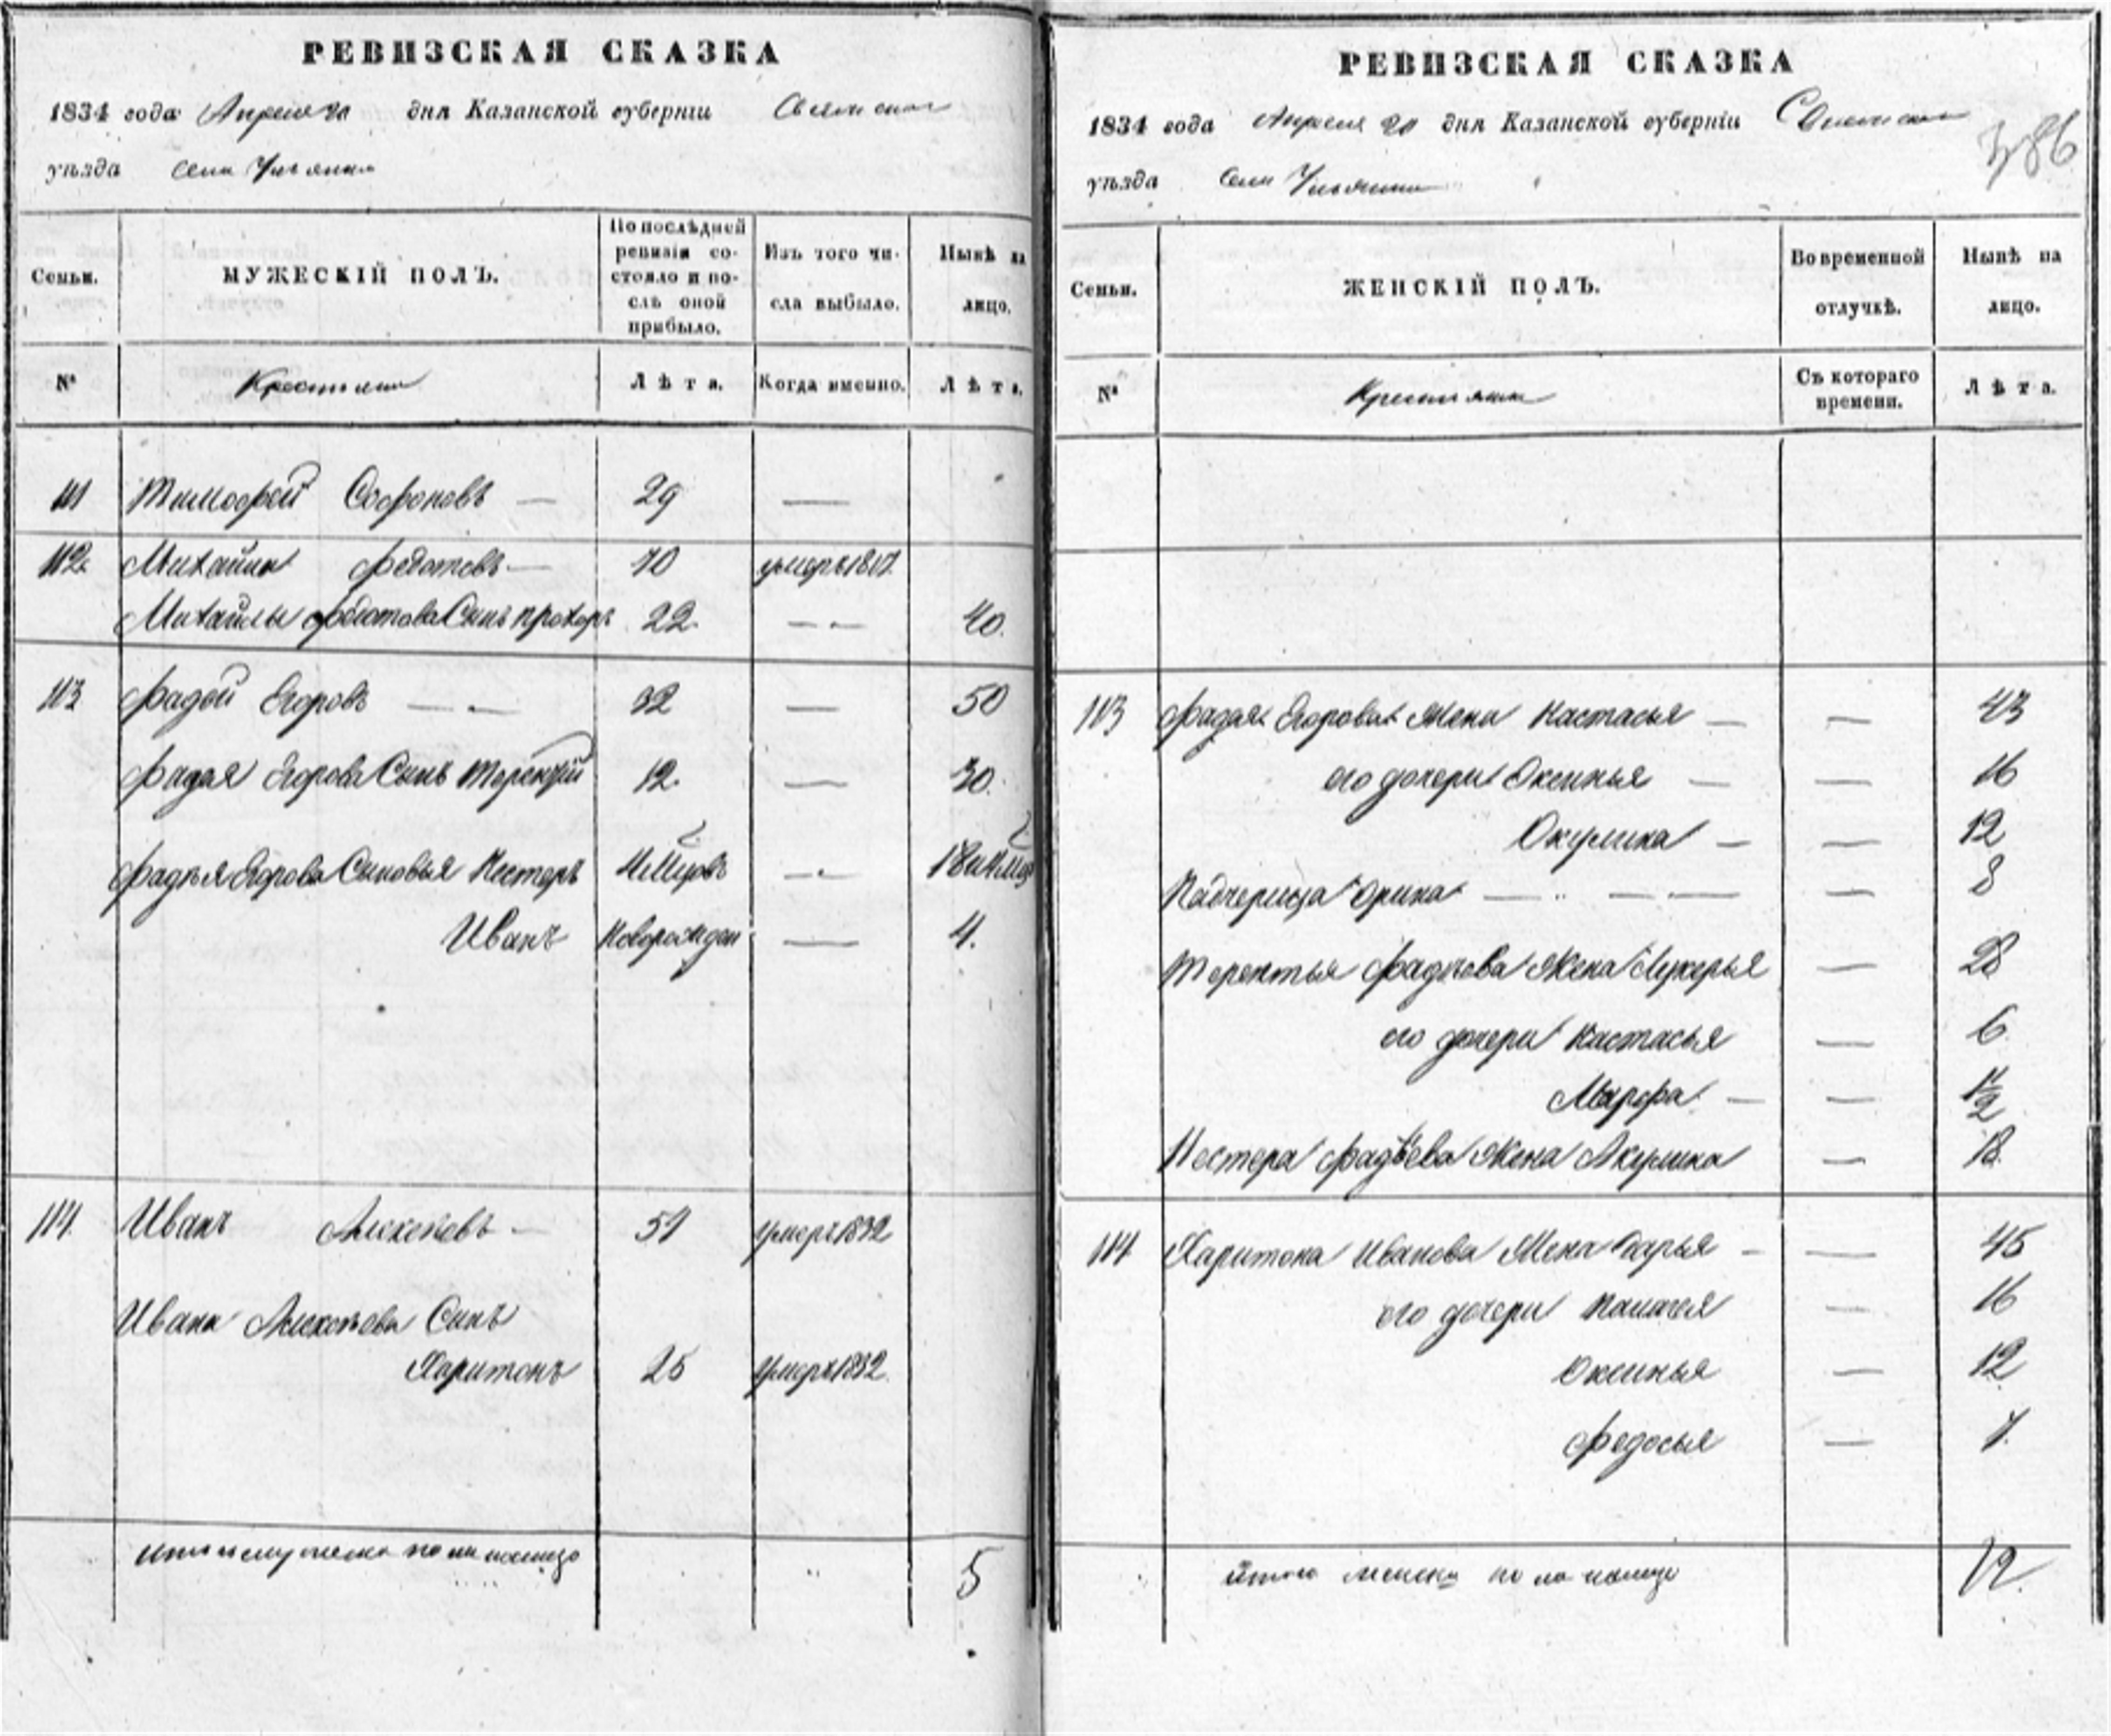 РЕВИЗСКАЯ СКАЗКА
1834 года Апреля 20 дня Казанской губерніи
уѣзда Села
Семьи.
МУЖЕСКІЙ ПОЛЪ.
По послѣдней
ревизіи со-
стояло и по-
слѣ оной
прибыло.
Изъ того чи-
сла выбыло.
Нынѣ на
лицо.
№
Крестьяне
Лѣта.
Когда именно.
Лѣта.
111 Тимофей Софоновъ — 29 —
112 Михайла Федотовъ — 70 умеръ
Михайлы Федотова Сынъ прохоръ 22. — 40.
113 Фадей Егоровъ — — 32 — 50
Фадея Егорова Сынъ Терентій 12. — 30.
Фадѣя Егорова Сыновья Нестеръ —
Иванъ Новорожден — 4.
114 Иванъ Алексѣевъ — умеръ 1832
Ивана Алексѣева Сынъ
Харитонъ 25 умеръ 1832.
5
РЕВИЗСКАЯ СКАЗКА
1834 года Апреля 20 дня Казанской губерніи
386
уѣзда Села
Семьи.
ЖЕНСКІЙ ПОЛЪ.
Во временной
отлучкѣ.
Нынѣ на
лицо.
№
Крестьяне
Съ котораго
времени.
Лѣта.
113 Фадея Егорова Жена Настасья — — 43
его дочери Оксинья — — 16
Окулина — — 12
Падчерица Орина — — — — 8
Терентья Фадѣева Жена Лукерья — 28
его дочери Настасья — 6
Марфа — — 1/2
Нестера Фадѣева Жена Акулина — 18.
114 Харитона Иванова Жена Дарья — — 45
его дочери Палагея — 16
Оксинья — 12
Федосья — 7.
итого женска пола налицо 12.